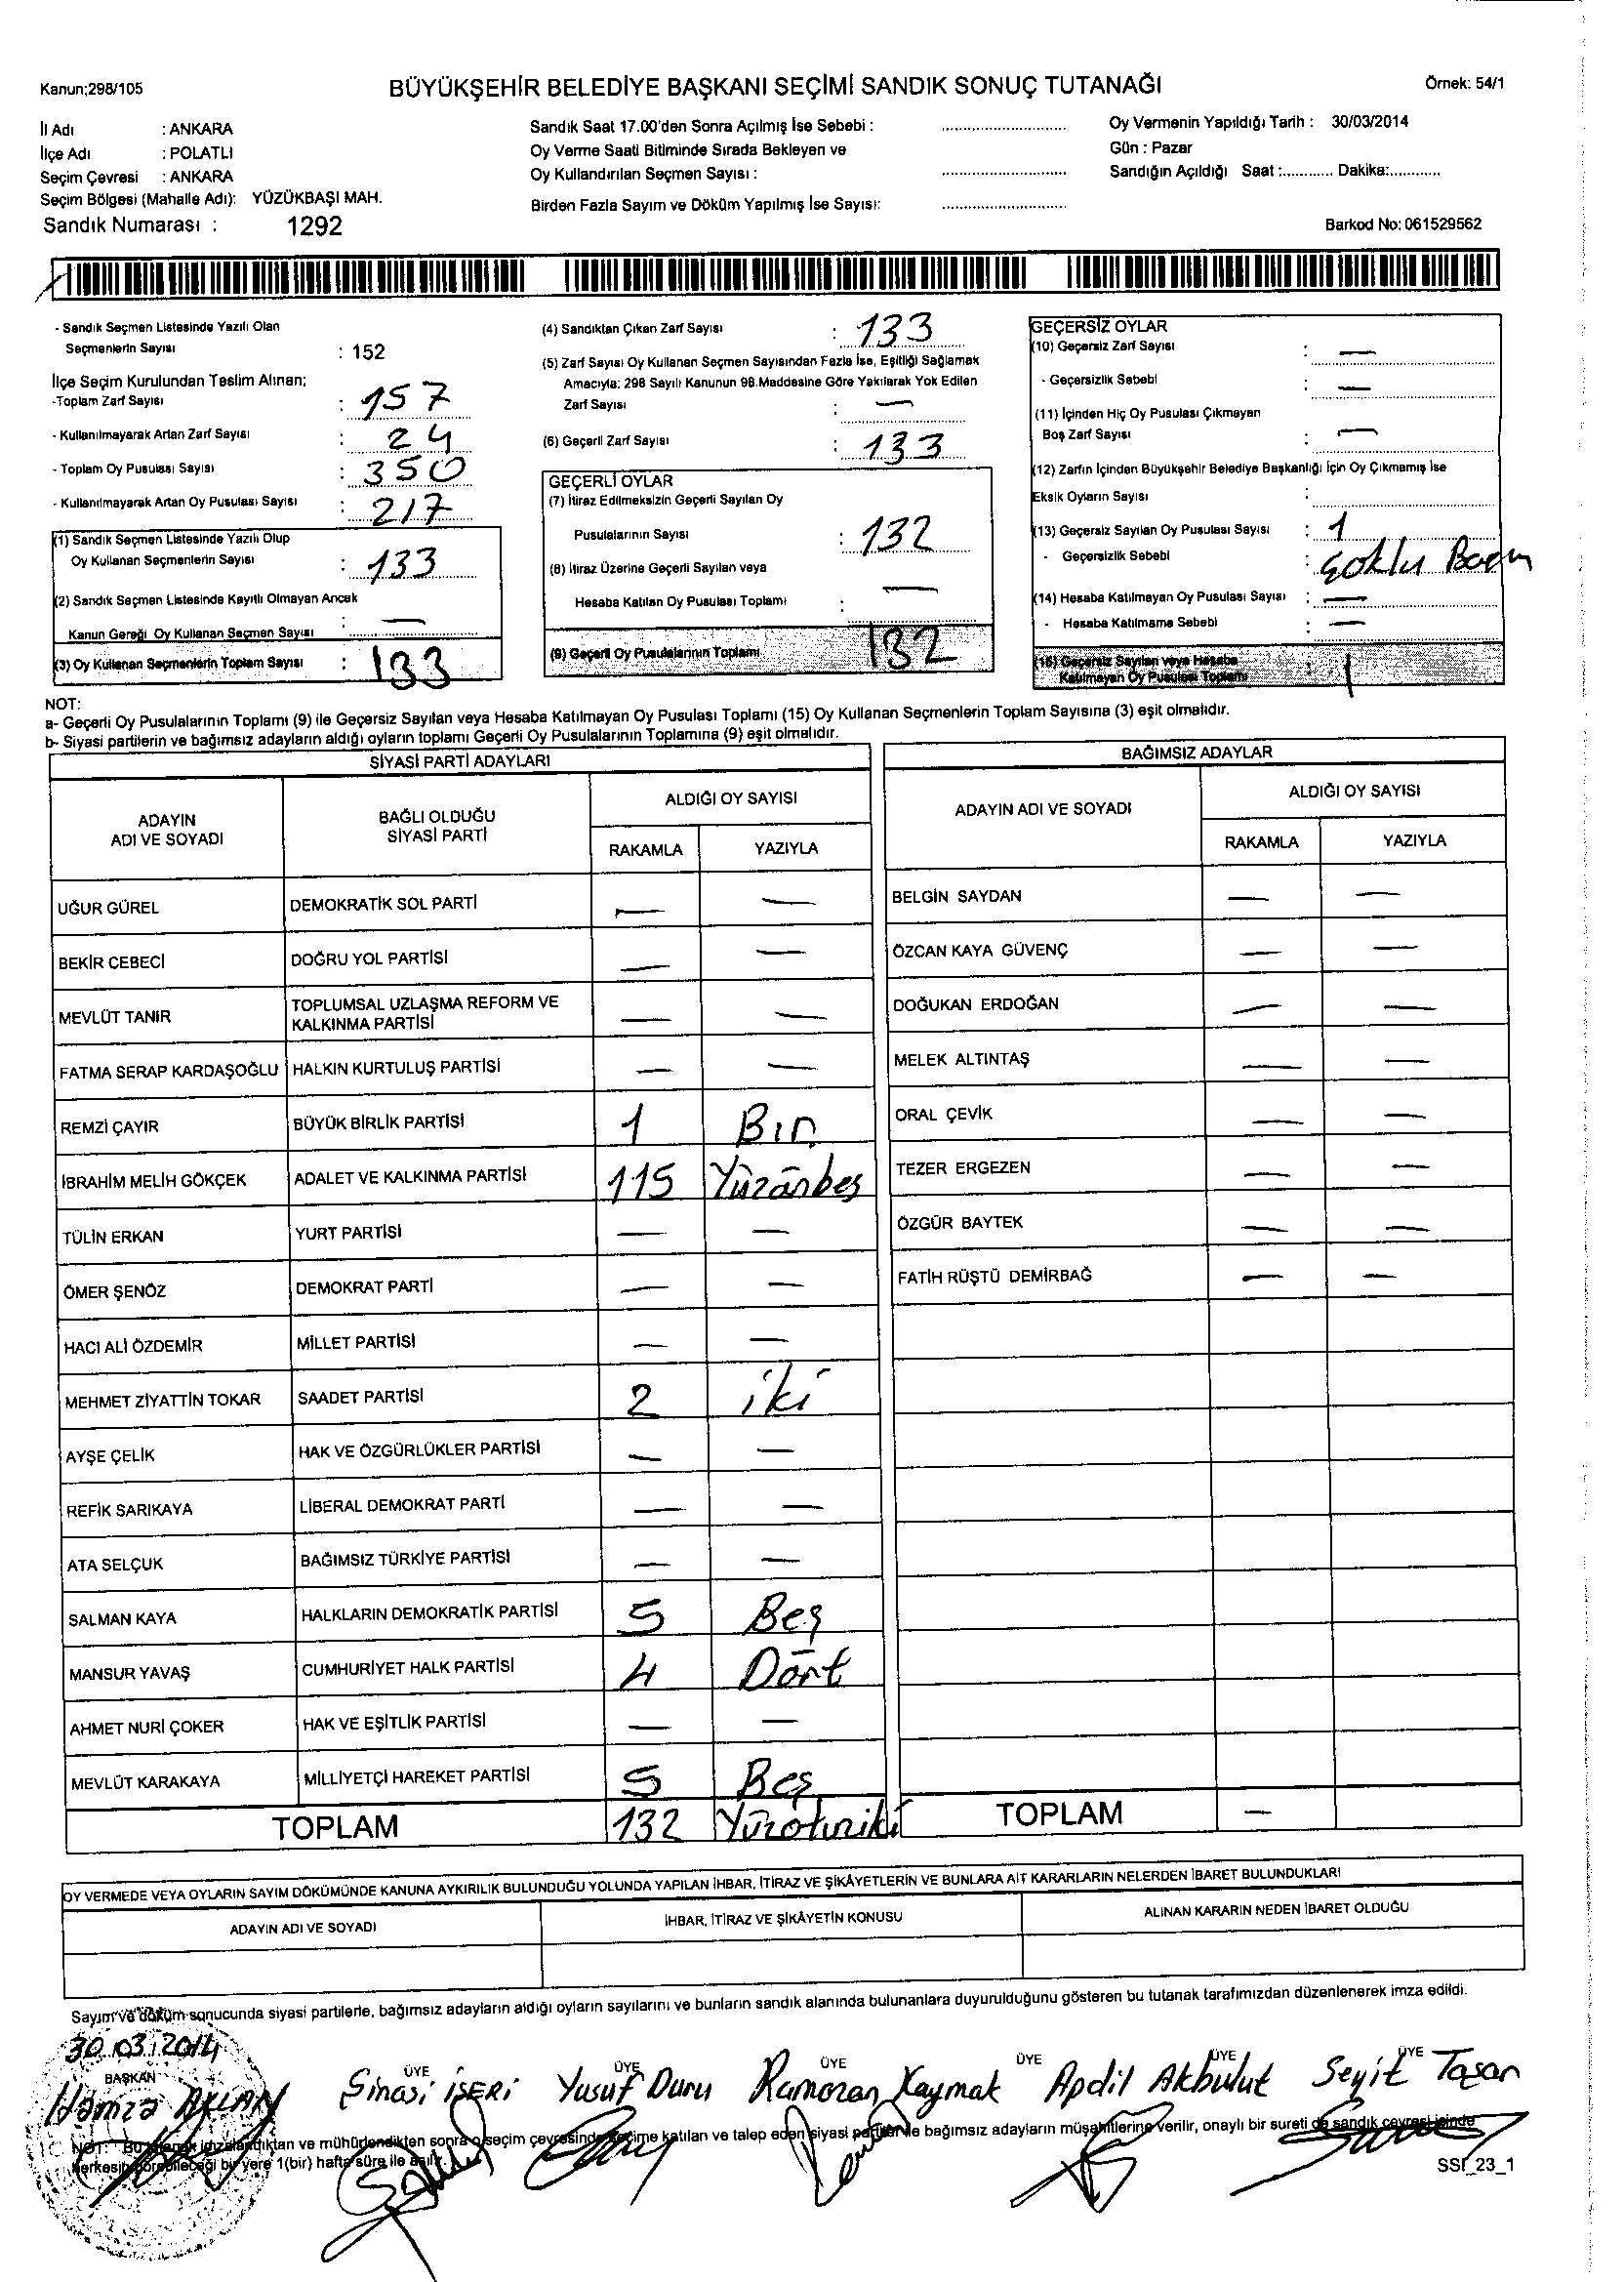 Kanun;298/105
BÜYÜKŞEHİR BELEDİYE BAŞKANI SEÇİMİ SANDIK SONUÇ TUTANAĞI
Örnek: 54/1
İl Adı : ANKARA
İlçe Adı : POLATLI
Seçim Çevresi : ANKARA
Seçim Bölgesi (Mahalle Adı): YÜZÜKBAŞI MAH.
Sandık Numarası : 1292
Sandık Saat 17.00'den Sonra Açılmış İse Sebebi :
Oy Verme Saati Bitiminde Sırada Bekleyen ve
Oy Kullandırılan Seçmen Sayısı :
Birden Fazla Sayım ve Döküm Yapılmış İse Sayısı:
Oy Vermenin Yapıldığı Tarih : 30/03/2014
Gün : Pazar
Sandığın Açıldığı Saat :............ Dakika:............
Barkod No: 061529562
- Sandık Seçmen Listesinde Yazılı Olan
Seçmenlerin Sayısı : 152
İlçe Seçim Kurulundan Teslim Alınan;
-Toplam Zarf Sayısı : 157
- Kullanılmayarak Artan Zarf Sayısı : 24
- Toplam Oy Pusulası Sayısı : 350
- Kullanılmayarak Artan Oy Pusulası Sayısı : 217
(1) Sandık Seçmen Listesinde Yazılı Olup
Oy Kullanan Seçmenlerin Sayısı : 133
(2) Sandık Seçmen Listesinde Kayıtlı Olmayan Ancak
Kanun Gereği Oy Kullanan Seçmen Sayısı : —
(3) Oy Kullanan Seçmenlerin Toplam Sayısı : 133
(4) Sandıktan Çıkan Zarf Sayısı : 133
(5) Zarf Sayısı Oy Kullanan Seçmen Sayısından Fazla İse, Eşitliği Sağlamak
Amacıyla; 298 Sayılı Kanunun 98.Maddesine Göre Yakılarak Yok Edilen
Zarf Sayısı : —
(6) Geçerli Zarf Sayısı : 133
GEÇERLİ OYLAR
(7) İtiraz Edilmeksizin Geçerli Sayılan Oy
Pusulalarının Sayısı : 132
(8) İtiraz Üzerine Geçerli Sayılan veya
Hesaba Katılan Oy Pusulası Toplamı : —
(9) Geçerli Oy Pusulalarının Toplamı 132
GEÇERSİZ OYLAR
(10) Geçersiz Zarf Sayısı : —
- Geçersizlik Sebebi : —
(11) İçinden Hiç Oy Pusulası Çıkmayan
Boş Zarf Sayısı : —
(12) Zarfın İçinden Büyükşehir Belediye Başkanlığı İçin Oy Çıkmamış İse
Eksik Oyların Sayısı :
(13) Geçersiz Sayılan Oy Pusulası Sayısı : 1
- Geçersizlik Sebebi : Çoklu
(14) Hesaba Katılmayan Oy Pusulası Sayısı : —
- Hesaba Katılmama Sebebi : —
(15) Geçersiz Sayılan veya Hesaba
Katılmayan Oy Pusulası Toplamı : 1
NOT:
a- Geçerli Oy Pusulalarının Toplamı (9) ile Geçersiz Sayılan veya Hesaba Katılmayan Oy Pusulası Toplamı (15) Oy Kullanan Seçmenlerin Toplam Sayısına (3) eşit olmalıdır.
b- Siyasi partilerin ve bağımsız adayların aldığı oyların toplamı Geçerli Oy Pusulalarının Toplamına (9) eşit olmalıdır.
SİYASİ PARTİ ADAYLARI
ADAYIN ADI VE SOYADI
BAĞLI OLDUĞU SİYASİ PARTİ
ALDIĞI OY SAYISI
RAKAMLA YAZIYLA
UĞUR GÜREL DEMOKRATİK SOL PARTİ — —
BEKİR ÇEBECİ DOĞRU YOL PARTİSİ — —
MEVLÜT TANIR TOPLUMSAL UZLAŞMA REFORM VE KALKINMA PARTİSİ — —
FATMA SERAP KARDAŞOĞLU HALKIN KURTULUŞ PARTİSİ — —
REMZİ ÇAYIR BÜYÜK BİRLİK PARTİSİ 1 Bir
İBRAHİM MELİH GÖKÇEK ADALET VE KALKINMA PARTİSİ 115 Yüzönbeş
TÜLİN ERKAN YURT PARTİSİ — —
ÖMER ŞENÖZ DEMOKRAT PARTİ — —
HACI ALİ ÖZDEMİR MİLLET PARTİSİ — —
MEHMET ZİYATTİN TOKAR SAADET PARTİSİ 2 iki
AYŞE ÇELİK HAK VE ÖZGÜRLÜKLER PARTİSİ — —
REFİK SARIKAYA LİBERAL DEMOKRAT PARTİ — —
ATA SELÇUK BAĞIMSIZ TÜRKİYE PARTİSİ — —
SALMAN KAYA HALKLARIN DEMOKRATİK PARTİSİ 5 Beş
MANSUR YAVAŞ CUMHURİYET HALK PARTİSİ 4 Dört
AHMET NURİ ÇOKER HAK VE EŞİTLİK PARTİSİ — —
MEVLÜT KARAKAYA MİLLİYETÇİ HAREKET PARTİSİ 5 Beş
TOPLAM 132 Yüzotuziki
BAĞIMSIZ ADAYLAR
ADAYIN ADI VE SOYADI
ALDIĞI OY SAYISI
RAKAMLA YAZIYLA
BELGİN SAYDAN — —
ÖZCAN KAYA GÜVENÇ — —
DOĞUKAN ERDOĞAN — —
MELEK ALTINTAŞ — —
ORAL ÇEVİK — —
TEZER ERGEZEN — —
ÖZGÜR BAYTEK — —
FATİH RÜŞTÜ DEMİRBAĞ — —
TOPLAM —
OY VERMEDE VEYA OYLARIN SAYIM DÖKÜMÜNDE KANUNA AYKIRILIK BULUNDUĞU YOLUNDA YAPILAN İHBAR, İTİRAZ VE ŞİKÂYETLERİN VE BUNLARA AİT KARARLARIN NELERDEN İBARET BULUNDUKLARI
ADAYIN ADI VE SOYADI
İHBAR, İTİRAZ VE ŞİKÂYETİN KONUSU
ALINAN KARARIN NEDEN İBARET OLDUĞU
Sayım ve döküm sonucunda siyasi partilerle, bağımsız adayların aldığı oyların sayılarını ve bunların sandık alanında bulunanlara duyurulduğunu gösteren bu tutanak tarafımızdan düzenlenerek imza edildi.
30.03.2014
BAŞKAN ÜYE ÜYE ÜYE ÜYE ÜYE ÜYE
Hamza Sinasi İŞERİ Yusuf Duru Ramazan Kaymak Apdil Akbulut Seyit Taşan
NOT: Bu tutanak imzalandıktan ve mühürlendikten sonra o seçim çevresinde seçime katılan ve talep eden siyasi partiler ile bağımsız adayların müşahitlerine verilir, onaylı bir sureti de sandık çevresi içinde
herkesin görebileceği bir yere 1(bir) hafta süre ile asılır.
SSI_23_1